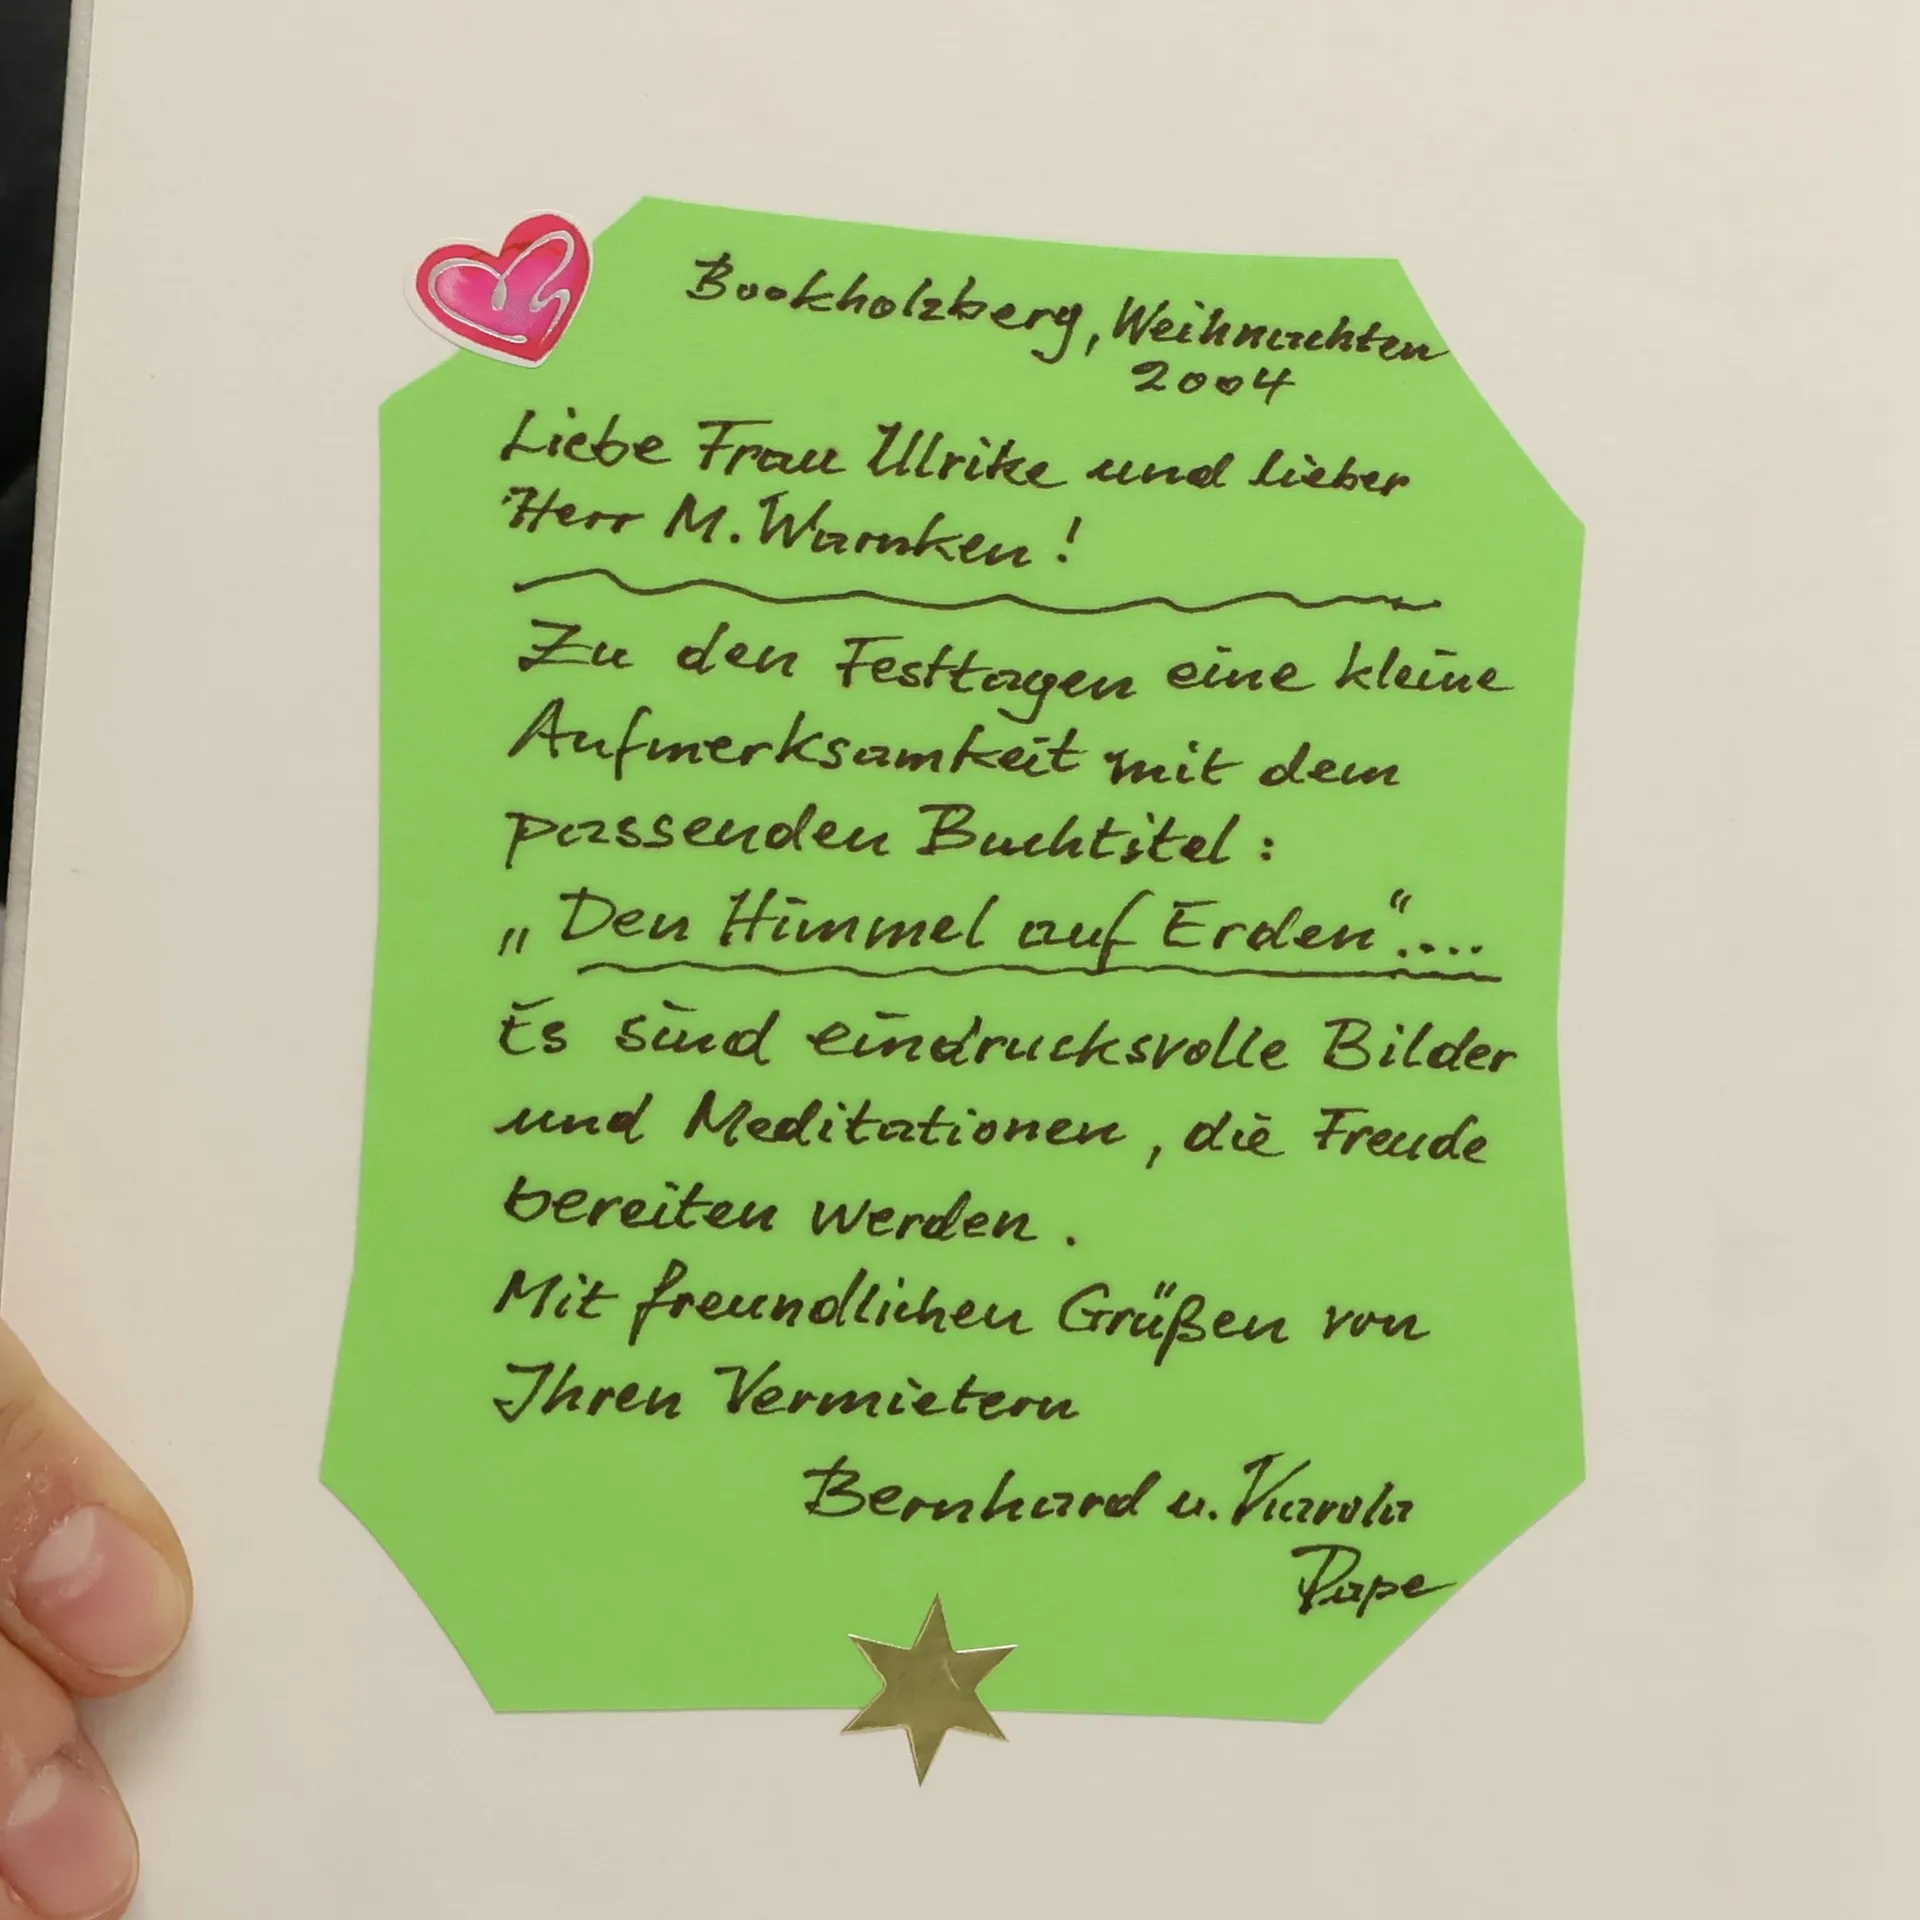 Bookholzberg, Weihnachten
2004
Liebe Frau Ulrike und lieber
Herr M. Warnken !
Zu den Festtagen eine kleine
Aufmerksamkeit mit dem
passenden Buchtitel :
„Den Himmel auf Erden“....
Es sind eindrucksvolle Bilder
und Meditationen, die Freude
bereiten werden.
Mit freundlichen Grüßen von
Ihren Vermietern
Bernhard u. Karola
Pape